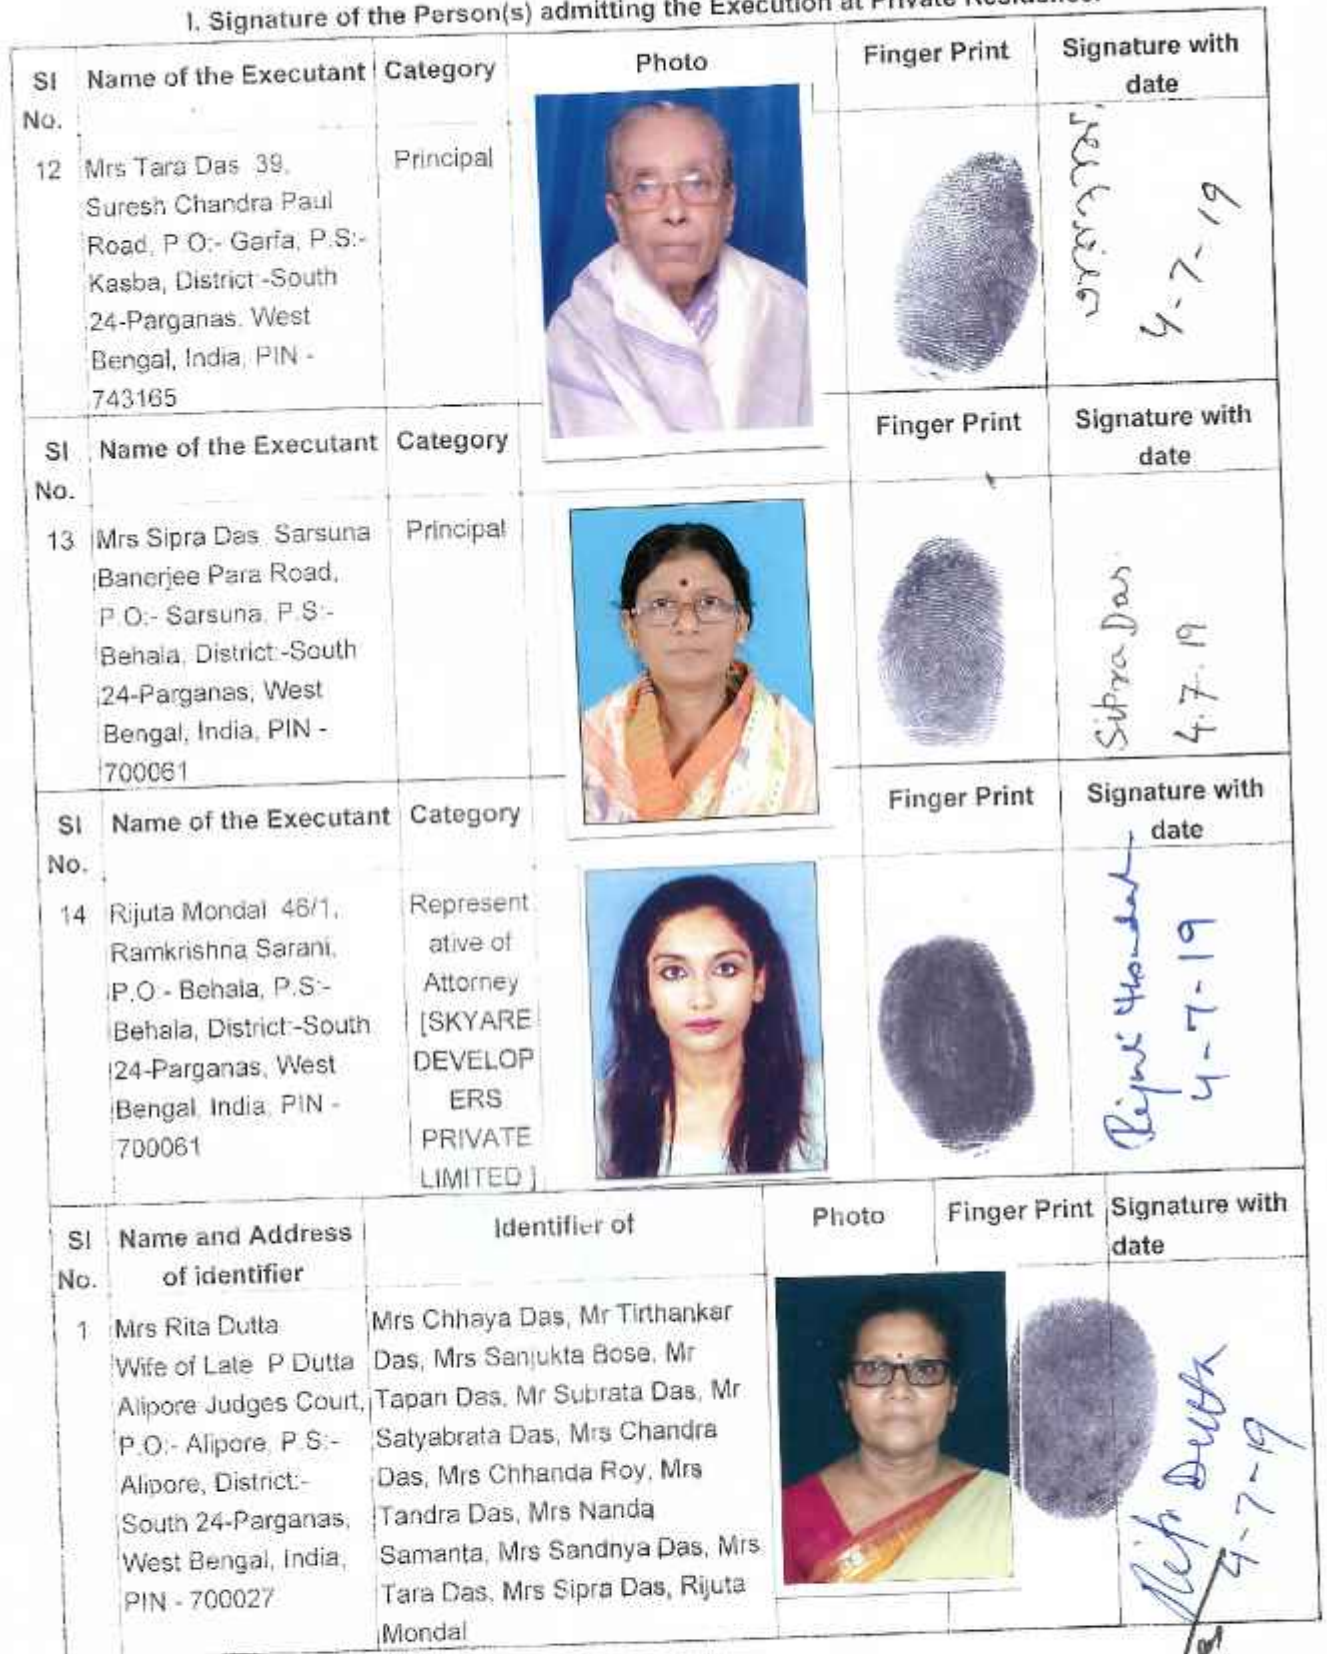 I. Signature of the Person(s) admitting the Execution at Private Residence.
Sl No.
Name of the Executant
Category
Photo
Finger Print
Signature with date
12
Mrs Tara Das 39,
Suresh Chandra Paul
Road, P.O:- Garfa, P.S:-
Kasba, District:-South
24-Parganas, West
Bengal, India, PIN -
743165
Principal
4-7-19
Sl No.
Name of the Executant
Category
Finger Print
Signature with date
13
Mrs Sipra Das Sarsuna
Banerjee Para Road,
P.O:- Sarsuna, P.S:-
Behala, District:-South
24-Parganas, West
Bengal, India, PIN -
700061
Principal
Sipra Das.
4.7.19
Sl No.
Name of the Executant
Category
Finger Print
Signature with date
14
Rijuta Mondal 46/1,
Ramkrishna Sarani,
P.O - Behala, P.S:-
Behala, District:-South
24-Parganas, West
Bengal, India, PIN -
700061
Represent
ative of
Attorney
[SKYARE
DEVELOP
ERS
PRIVATE
LIMITED ]
Rijuta Mondal
4-7-19
Sl No.
Name and Address
of identifier
Identifier of
Photo
Finger Print
Signature with
date
1
Mrs Rita Dutta
Wife of Late P Dutta
Alipore Judges Court,
P.O:- Alipore, P.S:-
Alipore, District:-
South 24-Parganas,
West Bengal, India,
PIN - 700027
Mrs Chhaya Das, Mr Tirthankar
Das, Mrs Sanjukta Bose, Mr
Tapan Das, Mr Subrata Das, Mr
Satyabrata Das, Mrs Chandra
Das, Mrs Chhanda Roy, Mrs
Tandra Das, Mrs Nanda
Samanta, Mrs Sandhya Das, Mrs
Tara Das, Mrs Sipra Das, Rijuta
Mondal
Rita Dutta
4-7-19